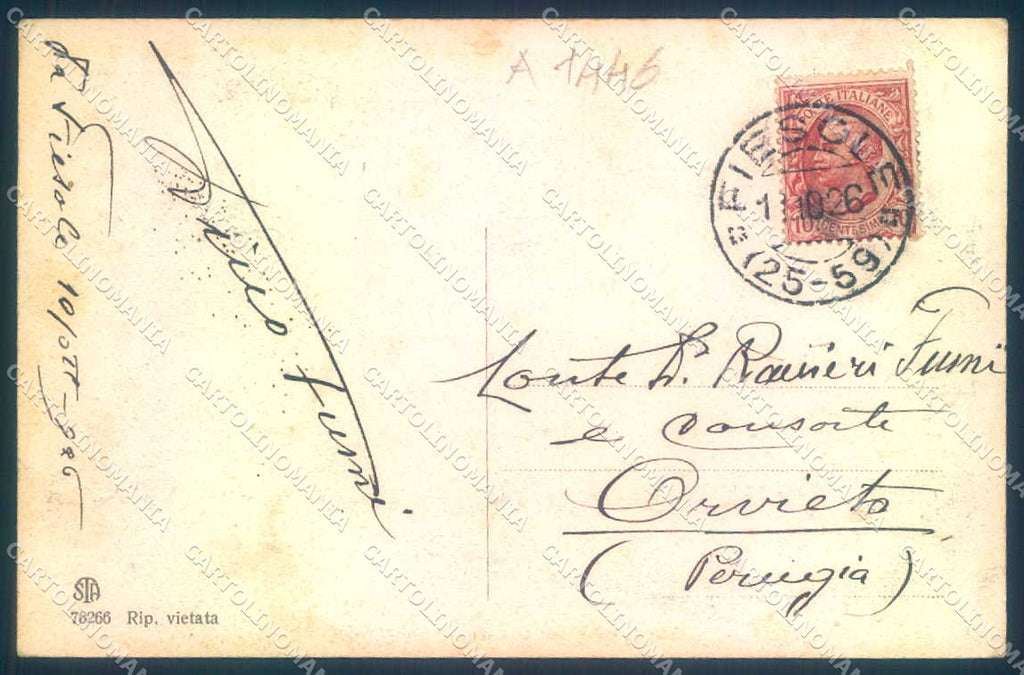 da Fiesole 10/ott - 926
Fumi
A 1446
POSTE ITALIANE
CENTESIMI
FIESOLE
10 26
(25-59)
Conte D. Ranieri Fumi
e Consorte
Orvieto
(Perugia)
STA
78266 Rip. vietata
CARTOLINOMANIA